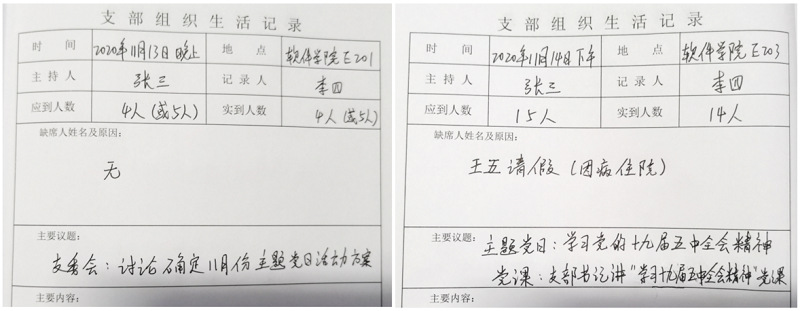 支部组织生活记录
时间 2020年11月13日晚上 地点 软件学院E201
主持人 张三 记录人 李四
应到人数 4人(或5人) 实到人数 4人(或5人)
缺席人姓名及原因:
无
主要议题:
支委会：讨论确定11月份主题党日活动方案
主要内容:
支部组织生活记录
时间 2020年11月14日下午 地点 软件学院E203
主持人 张三 记录人 李四
应到人数 15人 实到人数 14人
缺席人姓名及原因:
王五请假(因病住院)
主要议题:
主题党日：学习党的十九届五中全会精神
党课：支部书记讲"学习十九届五中全会精神"党课
主要内容: